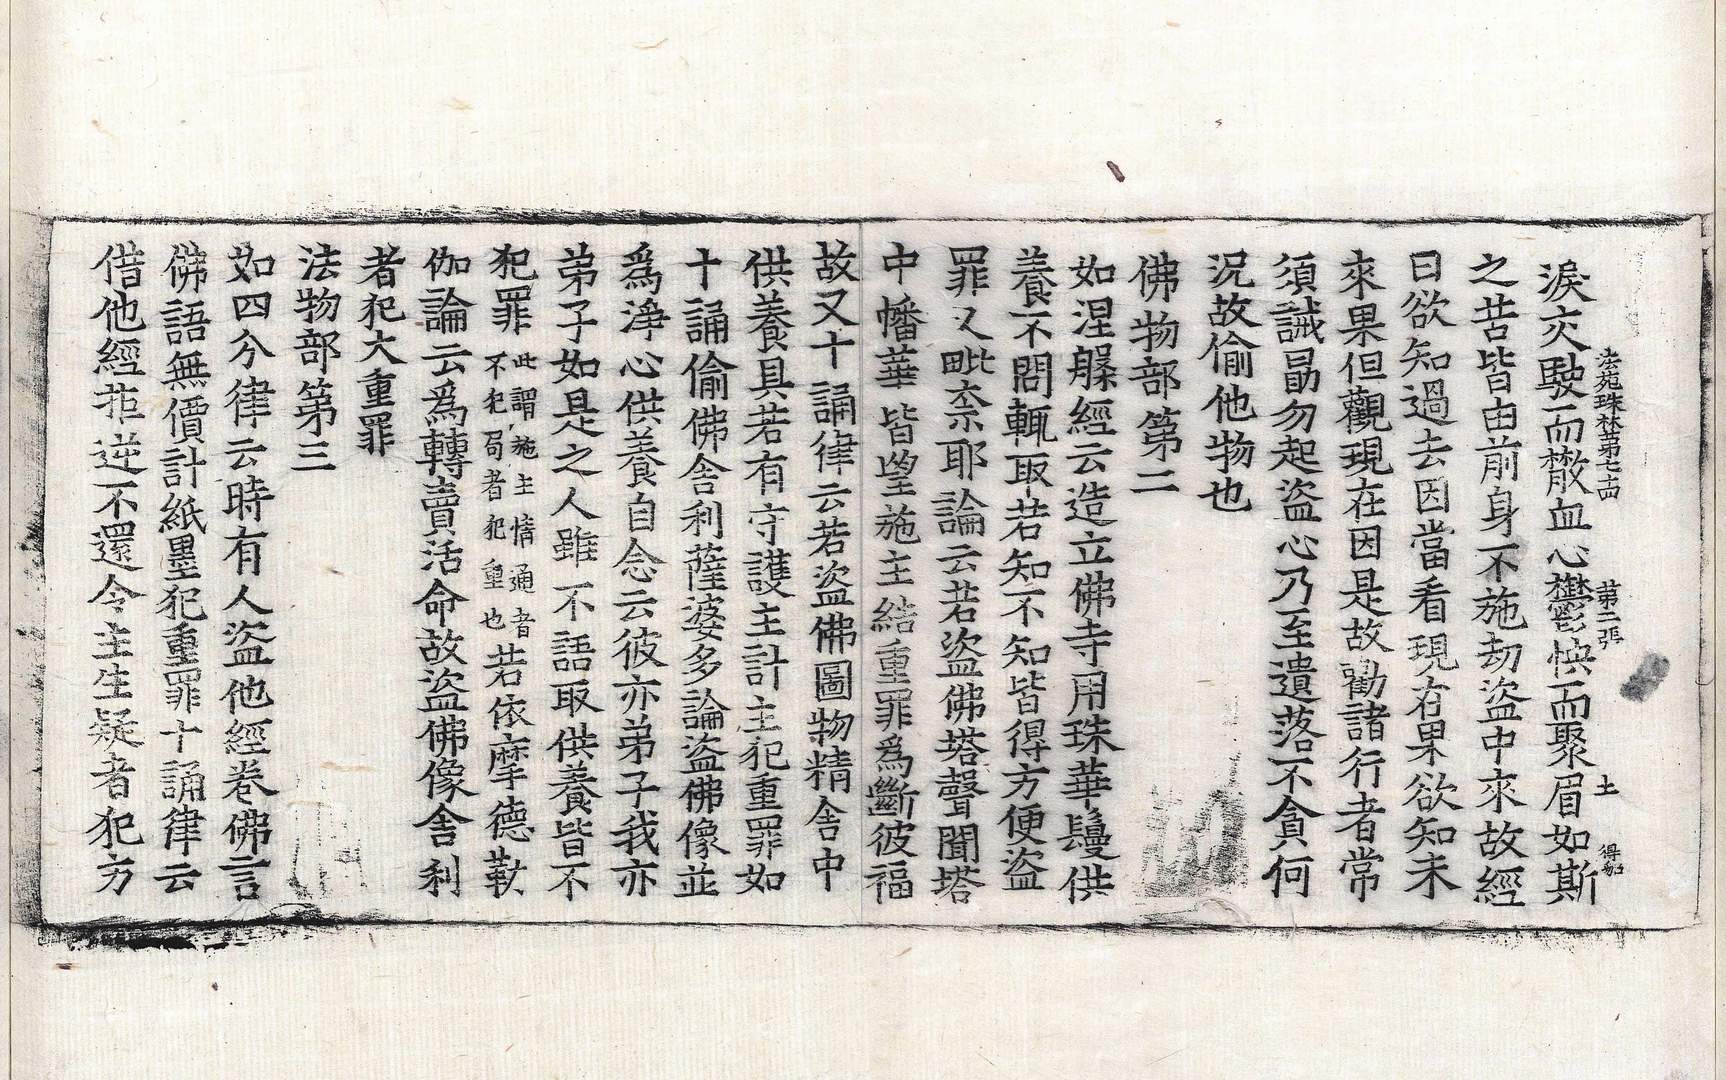 法苑珠林第七十四 第二張 土 得兔
淚交駛而憯血心欝怏而聚眉如斯
之苦皆由前身不施劫盜中來故經
曰欲知過去因當看現在果欲知未
來果但觀現在因是故勸諸行者常
須誡勗勿起盜心乃至遺落不貪何
況故偷他物也
佛物部第二
如涅槃經云造立佛寺用珠華鬘供
養不問輒取若知不知皆得方便盜
罪又毗柰耶論云若盜佛塔聲聞塔
中幡華皆望施主結重罪為斷彼福
故又十誦律云若盜佛圖物精舍中
供養具若有守護主計主犯重罪如
十誦偷佛舍利薩婆多論盜佛像並
為淨心供養自念云彼亦弟子我亦
弟子如是之人雖不語取供養皆不
犯罪此謂施主情通者不犯局者犯重也若依摩德勒
伽論云為轉賣活命故盜佛像舍利
者犯大重罪
法物部第三
如四分律云時有人盜他經卷佛言
佛語無價計紙墨犯重罪十誦律云
借他經拒逆不還令主生疑者犯方